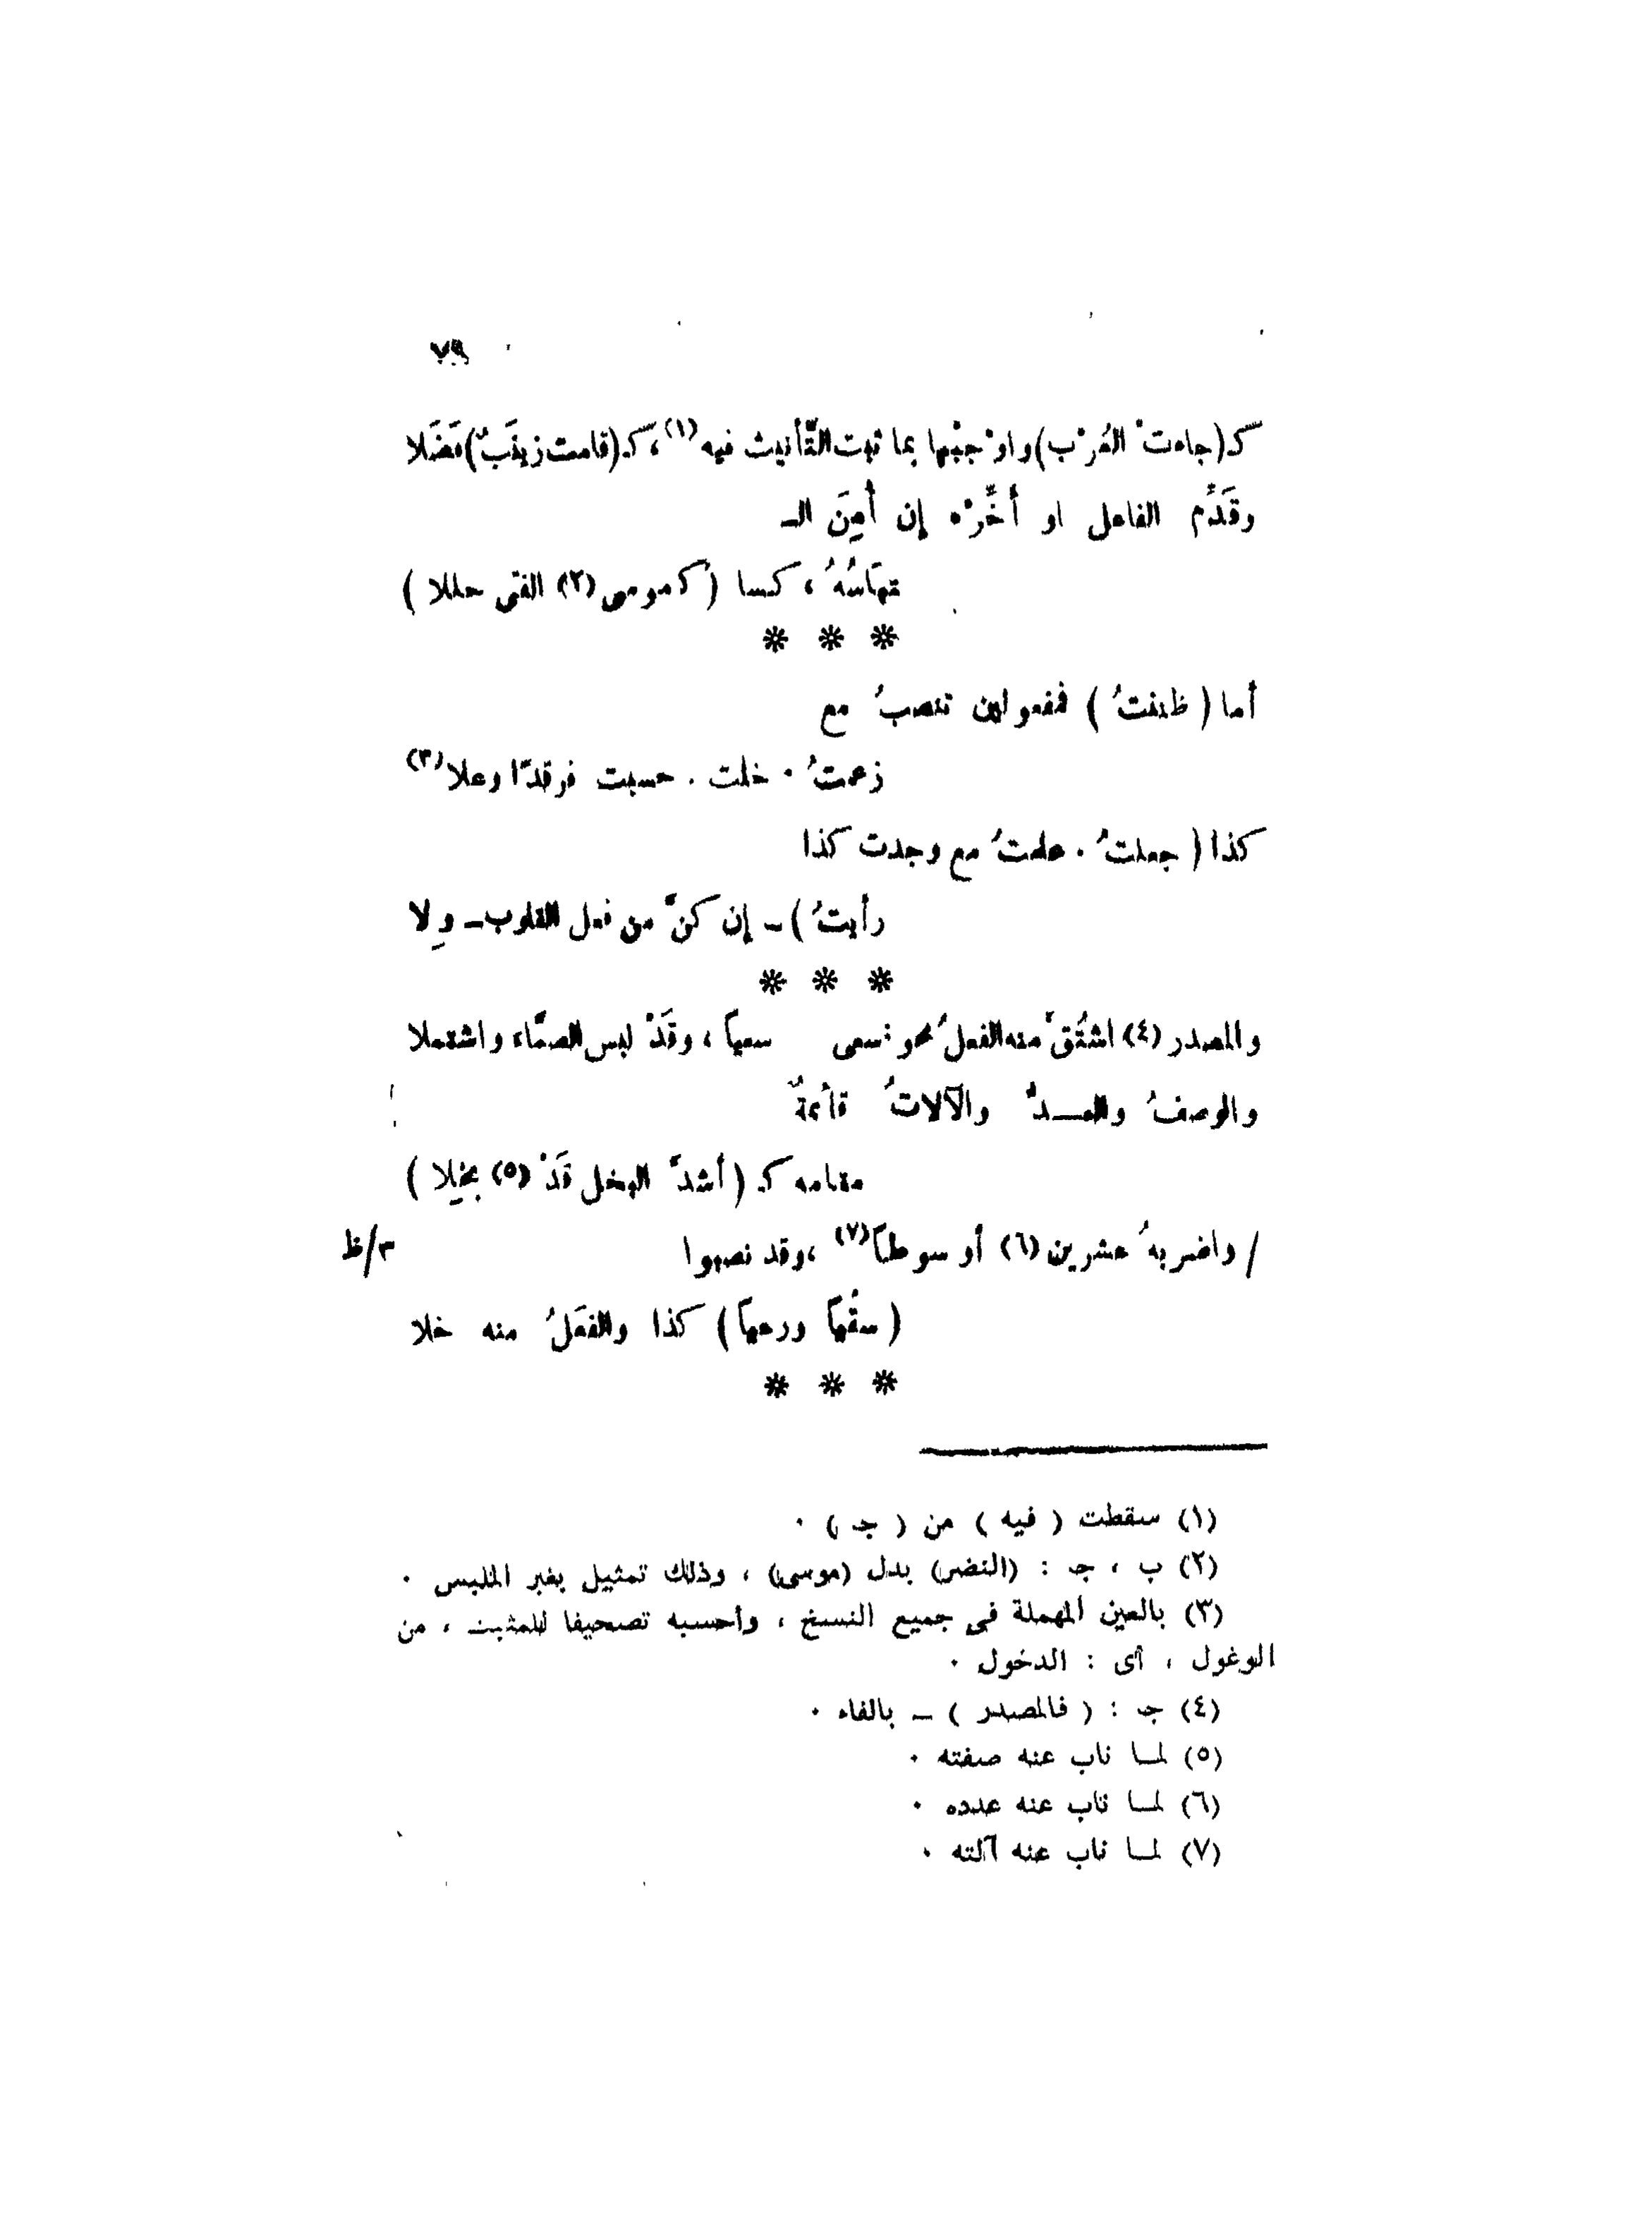 ٧٩
كـ (جاءت العُرْب) واوْجبْها بما ثبت التَّأنيث فيه (١)، كـ (قامت زينَبٌ) فَضَلا
وقَدِّم الفاعل او أَخِّرْه إن أُمِنَ الـ
تباسُهُ ، كسا (كموسى (٢) الفتى حللا )
* * *
أما ( ظننتُ ) فمفعولين تنصبُ مع
زعمتُ . خلت . حسبت فرقدًا وعلا (٣)
كذا ( جعلتُ . علمتُ مع وجدت كذا
رأيتُ ) ـ إن كنَّ من فعل القلوب ـ وِلا
* * *
والمصدر (٤) اشتُقَّ منه الفعلُ نحو : سعى سعياً ، وقَدْ لبس الصمَّاء واشتملا
والوصفُ والعـــدُّ والآلاتُ قائمةٌ
مقامه كـ ( أشدَّ البخل قَدْ (٥) بخِلا )
/ واضربهُ عشرين (٦) أو سوطاً (٧) ، وقد نصبوا
٣/ظ
( سقْياً ورعياً ) كذا والفعْلُ منه خلا
* * *
(١) سقطت ( فيه ) من ( جـ ) .
(٢) ب ، جـ : (النضر) بدل (موسى) ، وذلك تمثيل بغير الملبس .
(٣) بالعين المهملة فى جميع النسخ ، وأحسبه تصحيفا للمثبت ، من
الوغول ، أى : الدخول .
(٤) جـ : ( فالمصدر ) ـ بالفاء .
(٥) لمـا ناب عنه صفته .
(٦) لمـا ناب عنه عدده .
(٧) لمـا ناب عنه آلته .